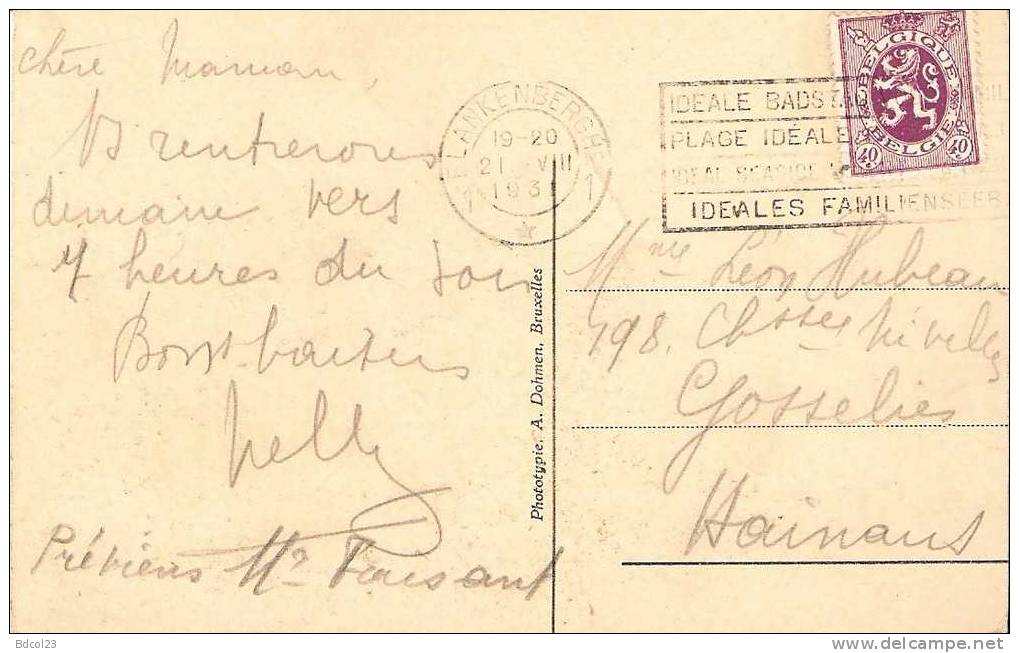 chère Maman,
rentrerons
demain vers
7 heures du soir
Bons baisers
Nelly
Préviens Mr
BLANKENBERGHE
1 1
19-20
21 VIII
1931
IDEALE BADSTA
PLAGE IDÉALE
IDEAL SEASIDE
IDEALES FAMILIENSEEB
BELGIQUE
BELGIE
40 40
Phototypie. A. Dohmen, Bruxelles
Mme Léon Hubeau
198. Chssée Nivelles
Gosselies
Hainaut
Bdcol23
www.delcampe.net